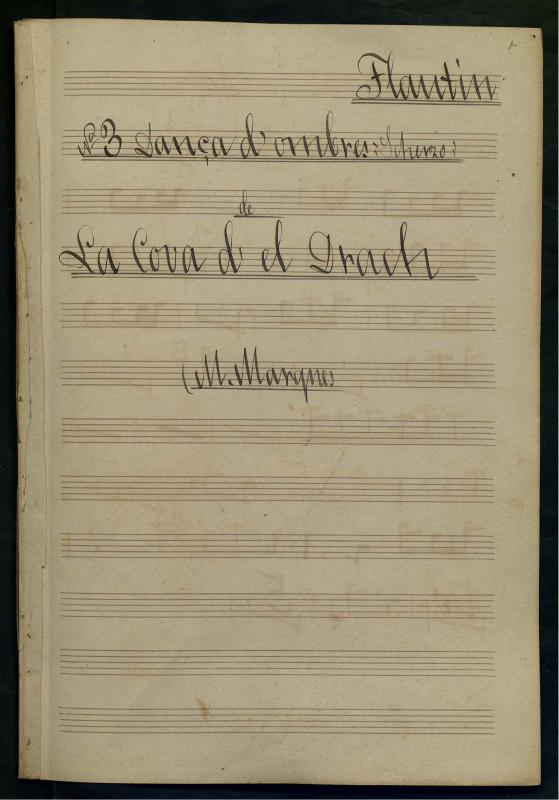 Flautin
Nº 3 Dança d'ombres (Scherzo)
de
La Cova d'el Drach
(M. Marques)